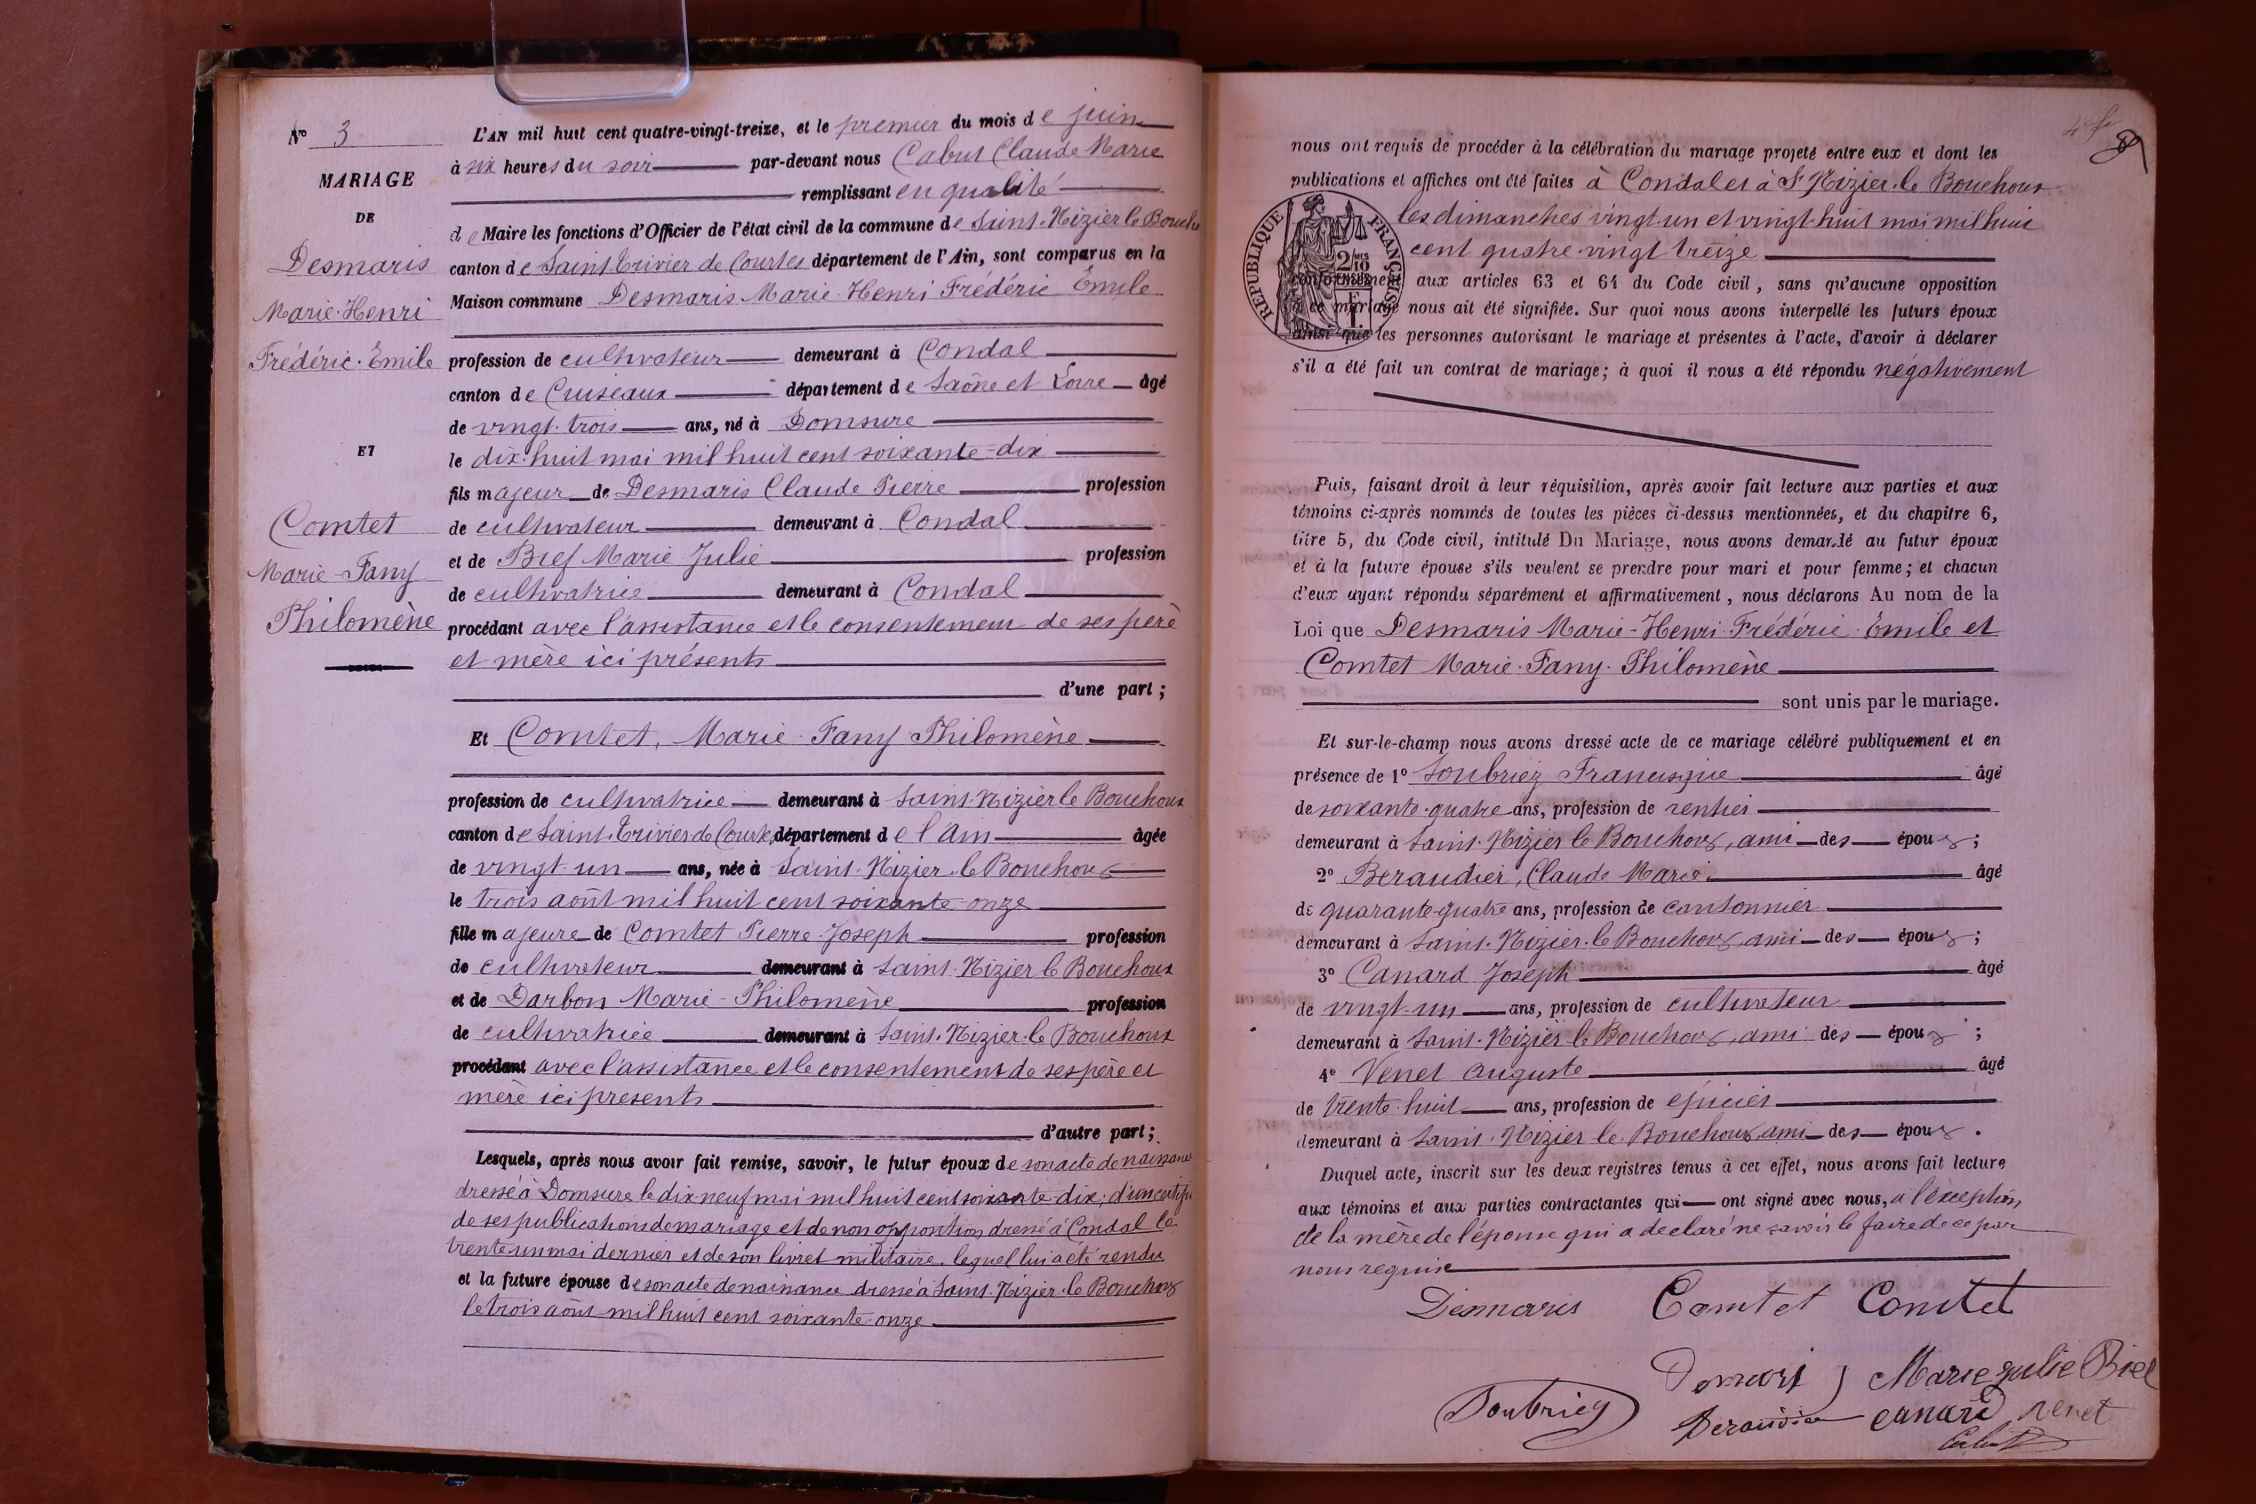 N° 3
MARIAGE
DE
Desmaris
Marie-Henri
Frédéric-Émile
ET
Comtet
Marie-Fany
Philomène
L'AN mil huit cent quatre-vingt-treize, et le premier du mois de juin
à six heures du soir par-devant nous Cabut Claude Marie
remplissant en qualité
de Maire les fonctions d'Officier de l'état civil de la commune de Saint-Nizier le Bouchoux
canton de Saint Trivier de Courtes département de l'Ain, sont comparus en la
Maison commune Desmaris Marie-Henri Frédéric Émile
profession de cultivateur demeurant à Condal
canton de Cuiseaux département de Saône et Loire âgé
de vingt-trois ans, né à Domsure
le dix-huit mai mil huit cent soixante-dix
fils majeur de Desmaris Claude Pierre profession
de cultivateur demeurant à Condal
et de Bief Marie Julie profession
de cultivatrice demeurant à Condal
procédant avec l'assistance et le consentement de ses père
et mère ici présents
d'une part ;
Et Comtet, Marie-Fany Philomène
profession de cultivatrice demeurant à Saint-Nizier le Bouchoux
canton de Saint-Trivier de Courtes département de l'Ain âgée
de vingt-un ans, née à Saint-Nizier-le Bouchoux
le trois août mil huit cent soixante-onze
fille majeure de Comtet Pierre-Joseph profession
de cultivateur demeurant à Saint-Nizier le Bouchoux
et de Darbon Marie-Philomène profession
de cultivatrice demeurant à Saint-Nizier-le Bouchoux
procédant avec l'assistance et le consentement de ses père et
mère ici présents
d'autre part ;
Lesquels, après nous avoir fait remise, savoir, le futur époux de son acte de naissance
dressé à Domsure le dix neuf mai mil huit cent soixante-dix ; d'un certificat
de ses publications de mariage et de non opposition dressé à Condal le
trente-un mai dernier et de son livret militaire, lequel lui a été rendu
et la future épouse de son acte de naissance dressé à Saint-Nizier-le Bouchoux
le trois août mil huit cent soixante-onze
nous ont requis de procéder à la célébration du mariage projeté entre eux et dont les
publications et affiches ont été faites à Condal et à St Nizier-le Bouchoux
les dimanches vingt-un et vingt-huit mai mil huit
cent quatre-vingt treize
RÉPUBLIQUE FRANÇAISE
conformément aux articles 63 et 64 du Code civil, sans qu'aucune opposition
à ce mariage nous ait été signifiée. Sur quoi nous avons interpellé les futurs époux
ainsi que les personnes autorisant le mariage et présentes à l'acte, d'avoir à déclarer
s'il a été fait un contrat de mariage ; à quoi il nous a été répondu négativement
Puis, faisant droit à leur réquisition, après avoir fait lecture aux parties et aux
témoins ci-après nommés de toutes les pièces ci-dessus mentionnées, et du chapitre 6,
titre 5, du Code civil, intitulé Du Mariage, nous avons demandé au futur époux
et à la future épouse s'ils veulent se prendre pour mari et pour femme ; et chacun
d'eux ayant répondu séparément et affirmativement, nous déclarons Au nom de la
Loi que Desmaris Marie-Henri-Frédéric-Émile et
Comtet Marie-Fany-Philomène
sont unis par le mariage.
Et sur-le-champ nous avons dressé acte de ce mariage célébré publiquement et en
présence de 1° Soubriez Francisque âgé
de soixante-quatre ans, profession de rentier
demeurant à Saint-Nizier le Bouchoux, ami des époux ;
2° Beraudier, Claude Marie âgé
de quarante-quatre ans, profession de cantonnier
demeurant à Saint-Nizier-le Bouchoux ami des époux ;
3° Canard Joseph âgé
de vingt-un ans, profession de cultivateur
demeurant à Saint-Nizier le Bouchoux, ami des époux ;
4° Venet Auguste âgé
de trente-huit ans, profession de épicier
demeurant à Saint-Nizier le Bouchoux ami des époux.
Duquel acte, inscrit sur les deux registres tenus à cet effet, nous avons fait lecture
aux témoins et aux parties contractantes qui ont signé avec nous, à l'exception
de la mère de l'épouse qui a déclaré ne savoir le faire de ce par
nous requise
Desmaris Comtet Comtet
Marie Julie Bief
Soubriez Beraudier Canard Venet
Cabut